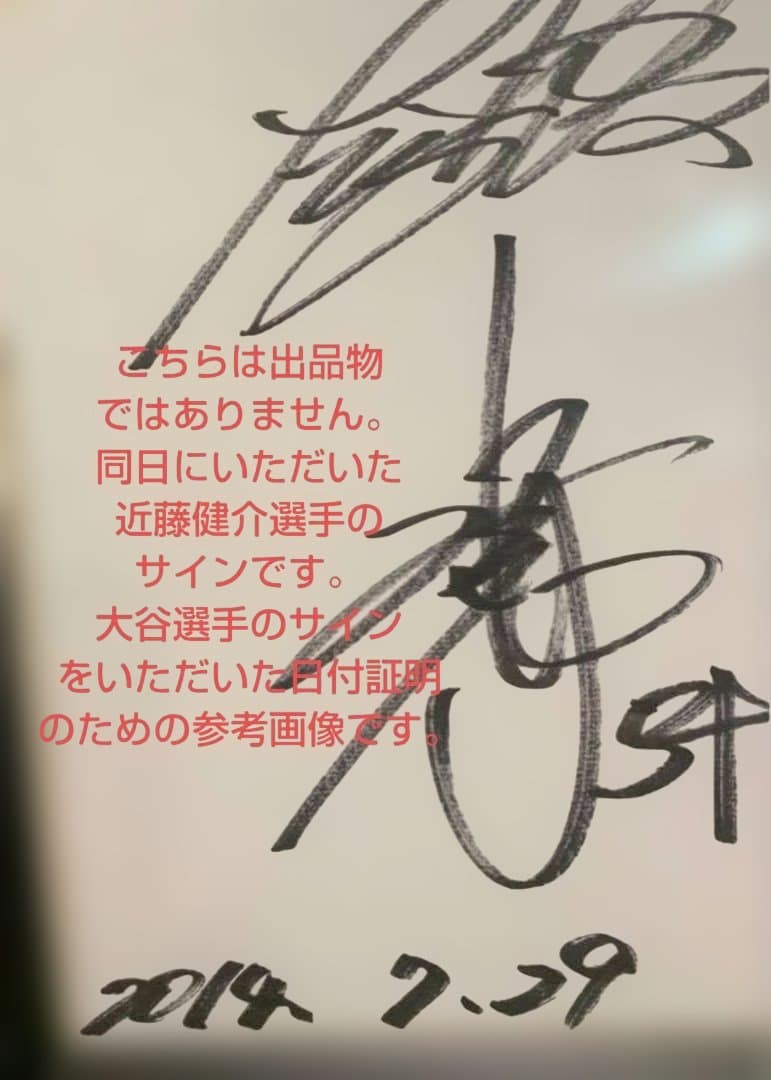 こちらは出品物
ではありません。
同日にいただいた
近藤健介選手の
サインです。
大谷選手のサイン
をいただいた日付証明
のための参考画像です。
54
2014 7.29